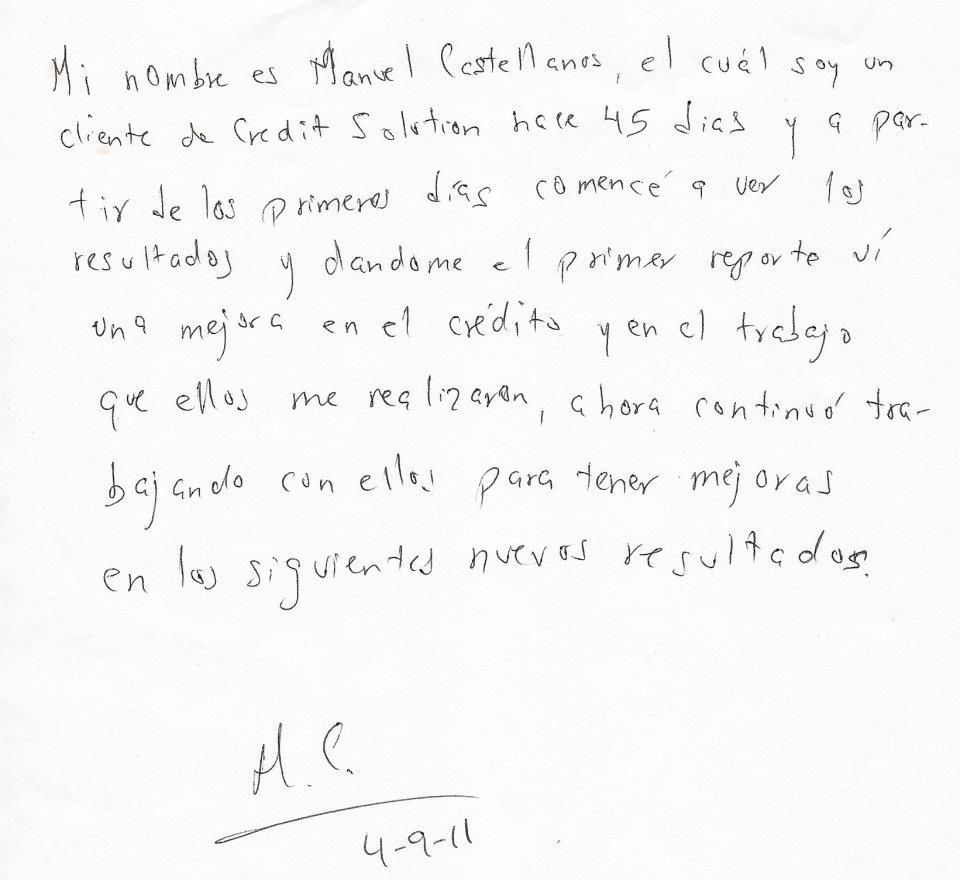 Mi nombre es Manuel Castellanos, el cuál soy un
cliente de Credit Solution hace 45 dias y a par-
tir de los primeros días comencé a ver los
resultados y dandome el primer reporte ví
una mejora en el crédito y en el trabajo
que ellos me realizaron, ahora continuó tra-
bajando con ellos para tener mejoras
en los siguientes nuevos resultados.
M.C.
4-9-11